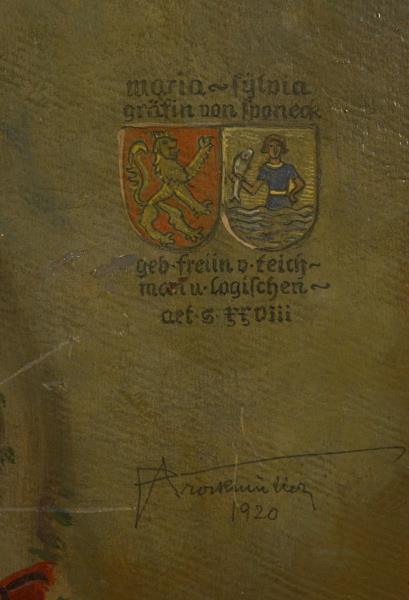 maria~sylvia
gräfin von sponeck
geb·freiin v·teich~
man u·logischen~
aet·s·xxviii
1920